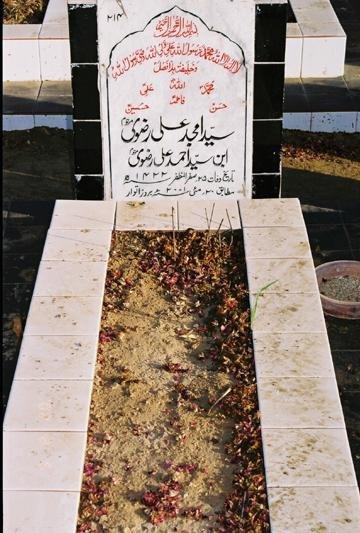 ۲۱۴
بسم اللہ الرحمن الرحیم
لا الہ الا اللہ محمد رسول اللہ علی ولی اللہ وصی رسول اللہ
و خلیفتہ بلا فصل
محمدؐ اللہ علیؑ
حسنؑ فاطمہؑ حسینؑ
سید امجد علی رضوی
ابن سید احمد علی رضوی
تاریخ وفات ۲۵ صفر المظفر ۱۴۲۲ھ
مطابق ۲۰ مئی ۲۰۰۱ء بروز اتوار